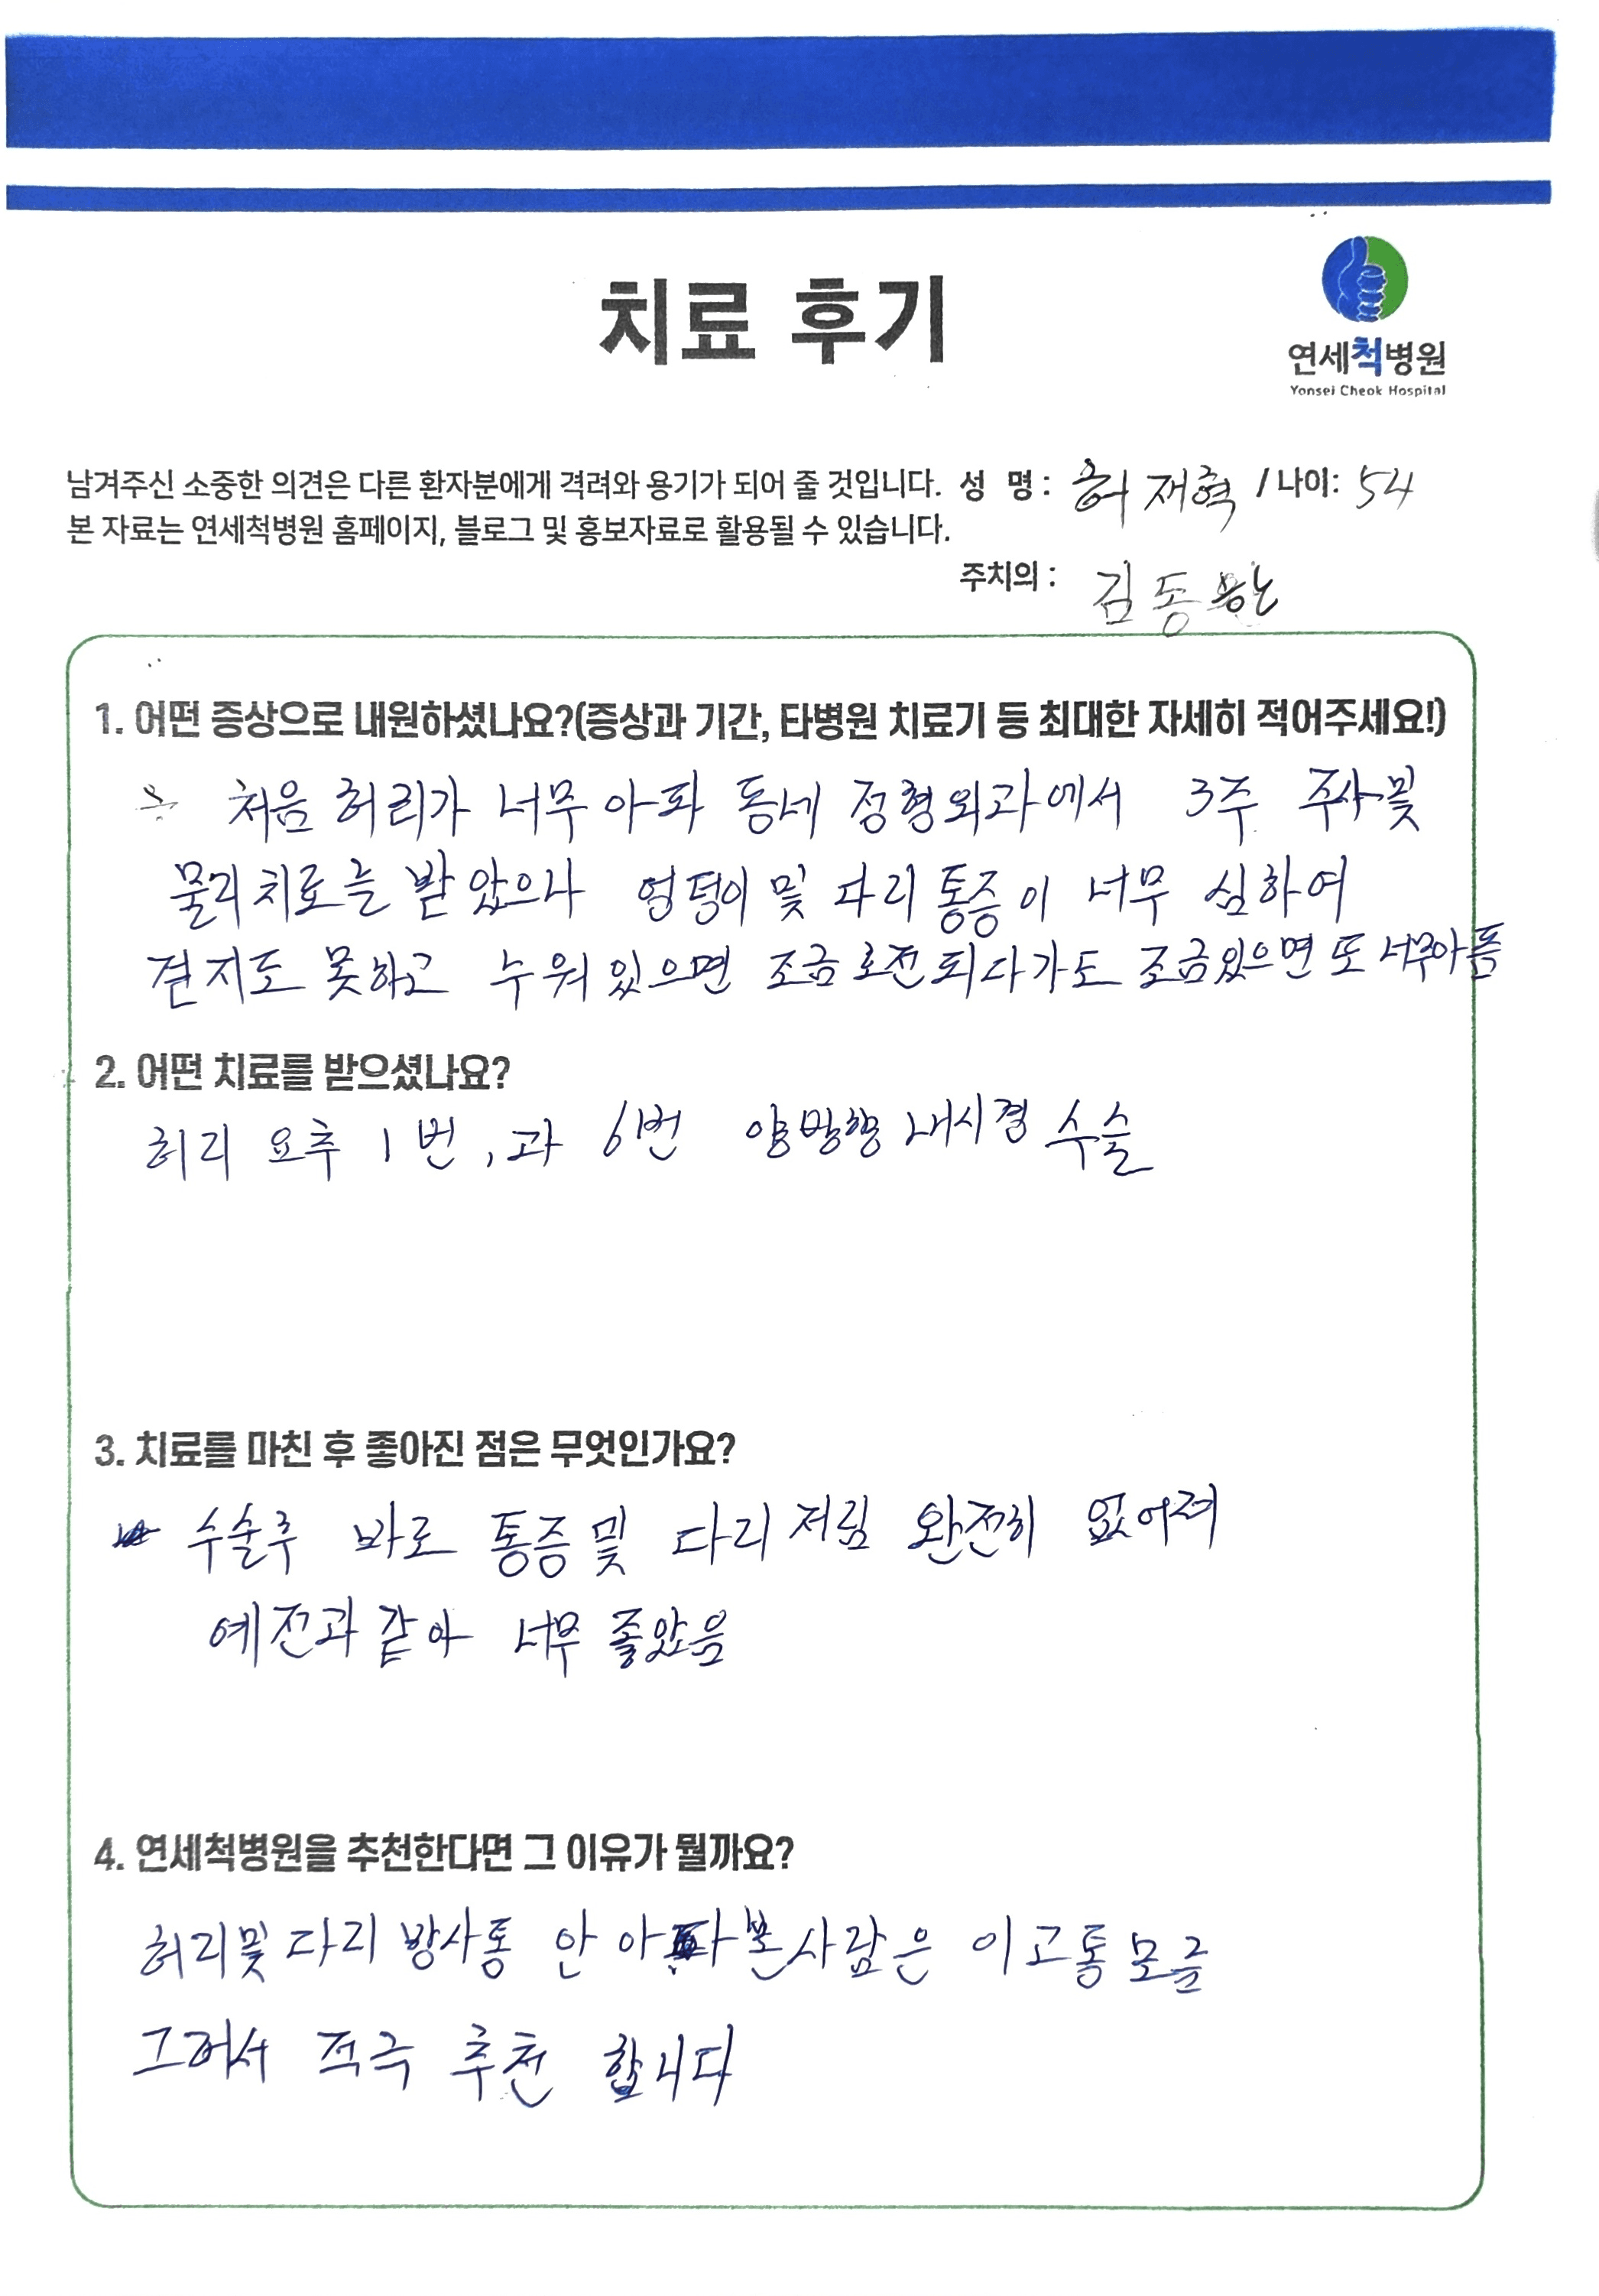 치료 후기
연세척병원
Yonsei Cheok Hospital
남겨주신 소중한 의견은 다른 환자분에게 격려와 용기가 되어 줄 것입니다. 성 명 : 허재혁 / 나이: 54
본 자료는 연세척병원 홈페이지, 블로그 및 홍보자료로 활용될 수 있습니다.
주치의 : 김동한
1. 어떤 증상으로 내원하셨나요?(증상과 기간, 타병원 치료기 등 최대한 자세히 적어주세요!)
처음 허리가 너무 아파 동네 정형외과에서 3주 주사및
물리치료를 받았으나 엉덩이 및 다리 통증이 너무 심하여
걷지도 못하고 누워있으면 조금 호전되다가도 조금있으면 또 너무아픔
2. 어떤 치료를 받으셨나요?
허리 요추 1번, 과 6번 양방향 내시경 수술
3. 치료를 마친 후 좋아진 점은 무엇인가요?
수술후 바로 통증 및 다리 저림 완전히 없어져
예전과 같아 너무 좋았음
4. 연세척병원을 추천한다면 그 이유가 뭘까요?
허리및 다리 방사통 안 아파본사람은 이고통 모름
그래서 적극 추천 합니다